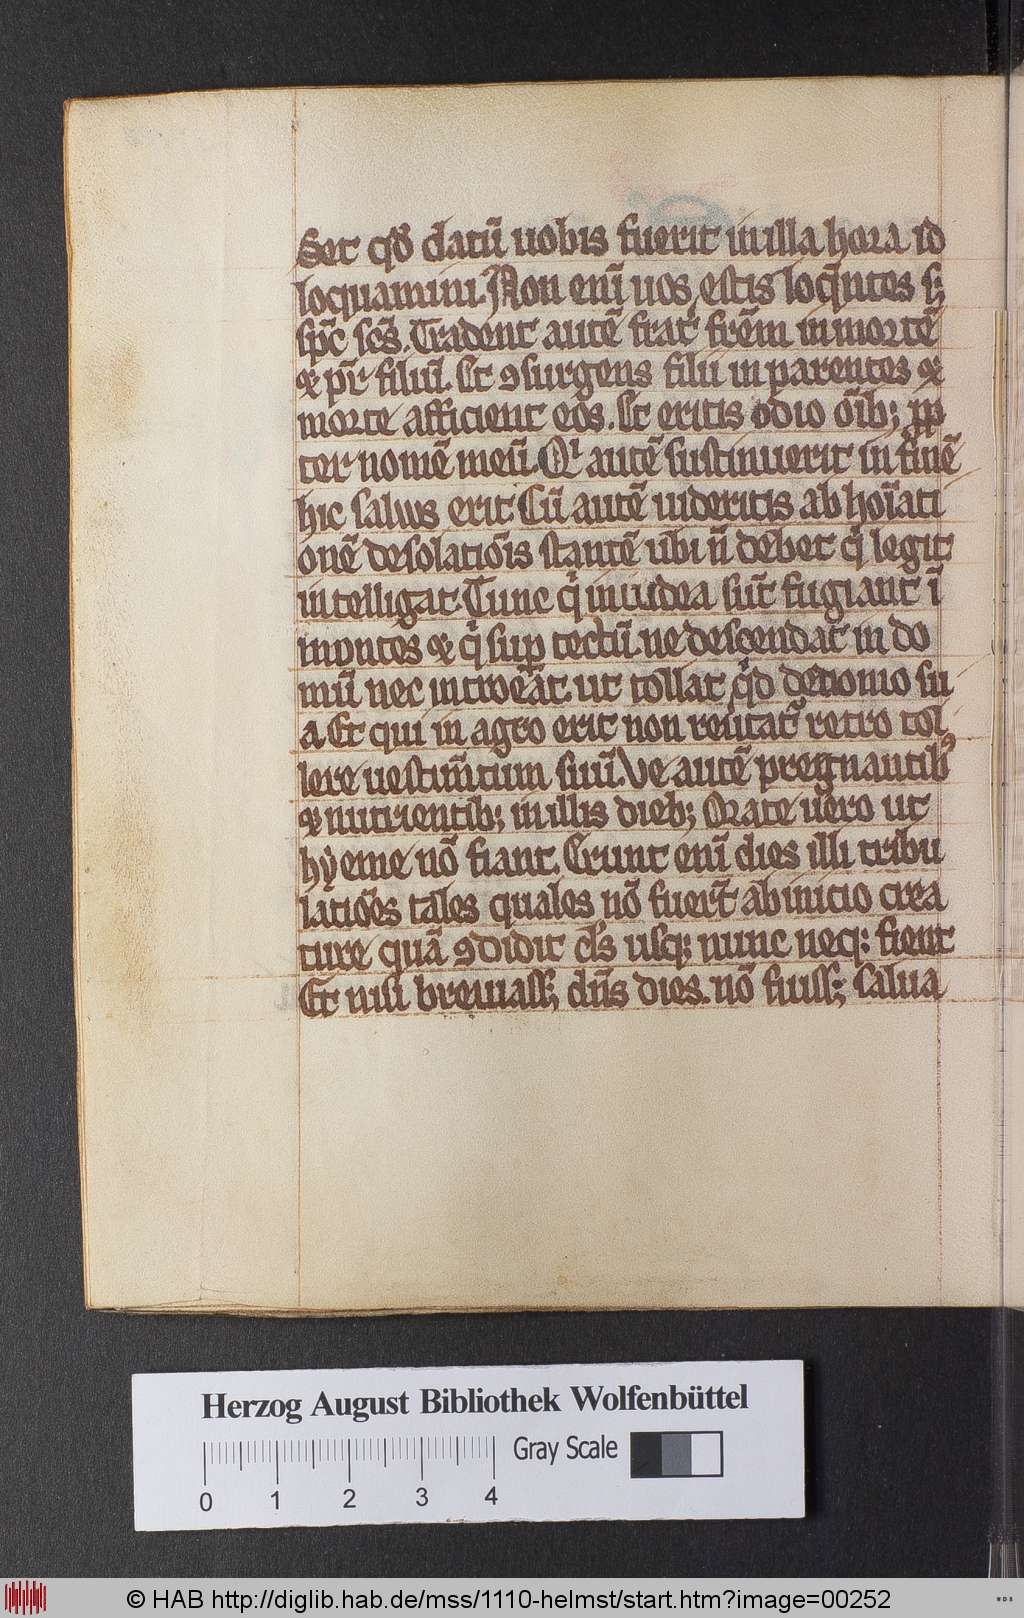 Set qd̄ datū uobis fuerit in illa hora id
loquamini. Non enī uos estis loq̄ntes s;
sp̄c scs̄. Tradent autē frat̄ frēm in mortē
⁊ pr̄ filiū. Et ꝯsurgens filii in parentes ⁊
morte afficient eos. Et eritis odio oīb; ꝓp
ter nomē meū. Qⁱ autē sustinuerit in finē
hic saluus erit. Cū autē uideritis abhoīati
onē desolatiōis stantē ubi n̄ debet qⁱ legit
intelligat. Tunc qⁱ in iudea sūt fugiant ī
montes ⁊ qⁱ sup̄ tectū ne descendat in do
mū nec introeāt ut tollat qⁱd de domo su
a Et qui in agro erit non reūtatᷣ retro tol
lere uestim̄tum suū. Ve autē pregnantibꝰ
⁊ nutrientib; in illis dieb; Orate uero ut
hẏeme nō fiant. Erunt enī dies illi tribu
latiōes tales quales nō fuer̄t ab inicio crea
ture quā ꝯdidit ds̄ usq; nunc neq; fient
Et nisi breuiass; dn̄s dies. nō fuiss; salua
Herzog August Bibliothek Wolfenbüttel
Gray Scale
0 1 2 3 4
© HAB http://diglib.hab.de/mss/1110-helmst/start.htm?image=00252